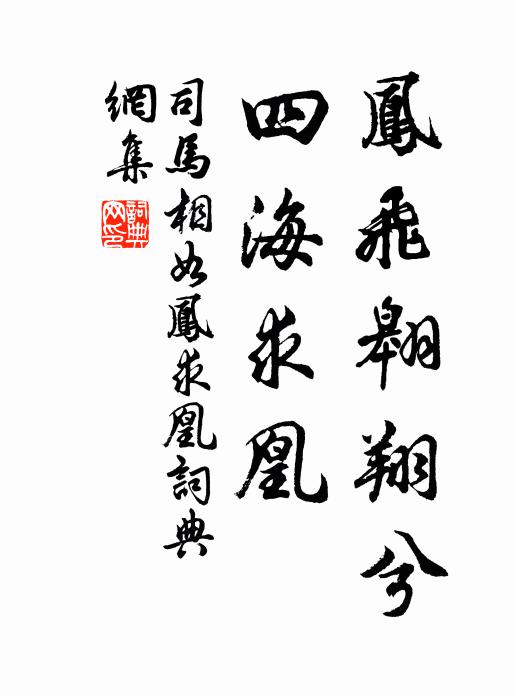 鳳飛翱翔兮
四海求凰
司馬相如鳳求凰詞典
網集
詞典
网印